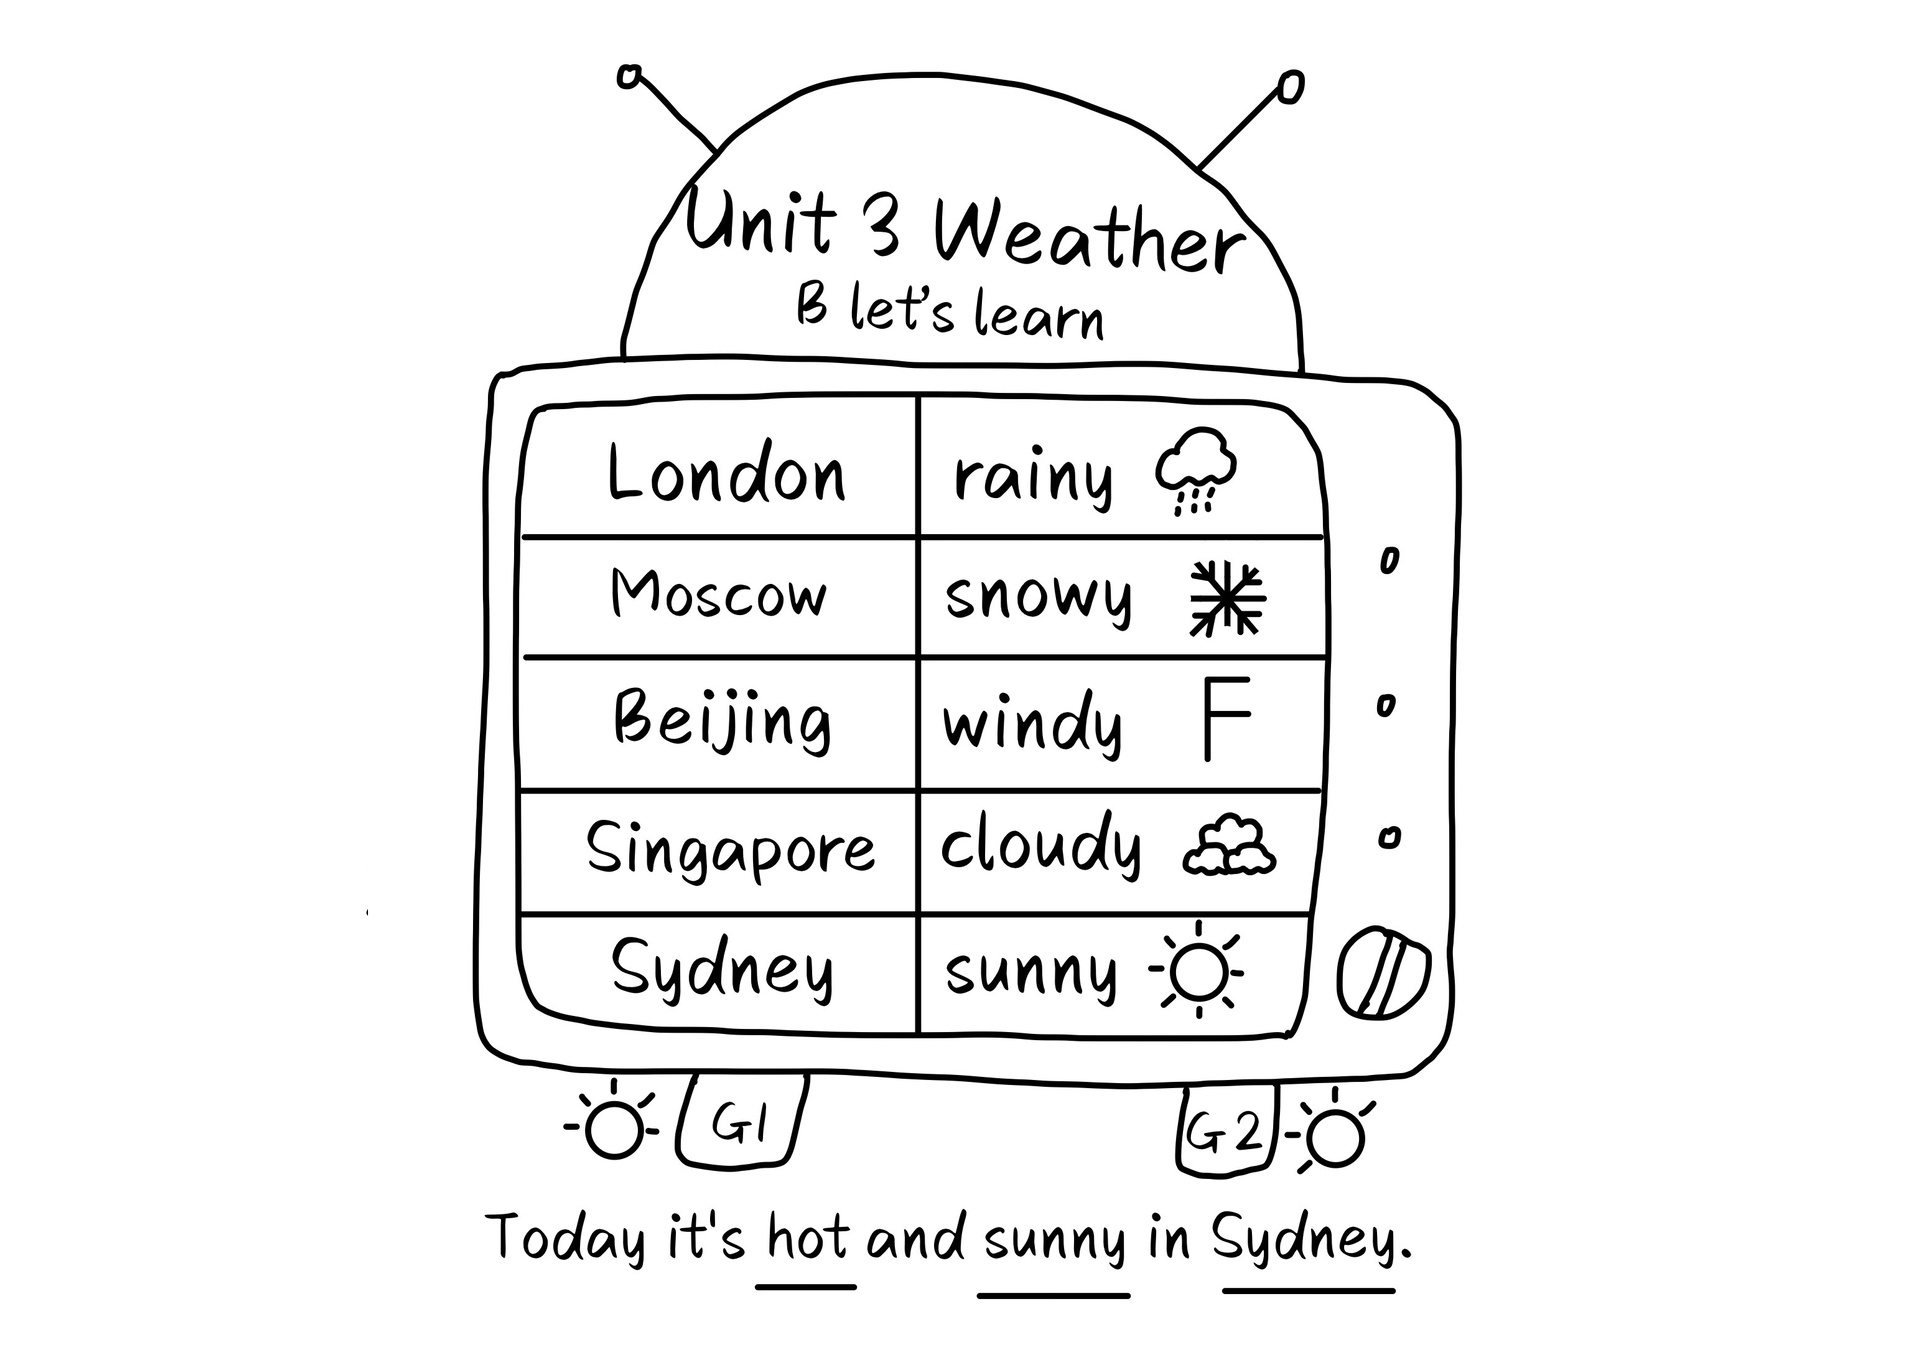 Unit 3 Weather
B let's learn
London rainy
Moscow snowy
Beijing windy
Singapore cloudy
Sydney sunny
G1 G2
Today it's hot and sunny in Sydney.